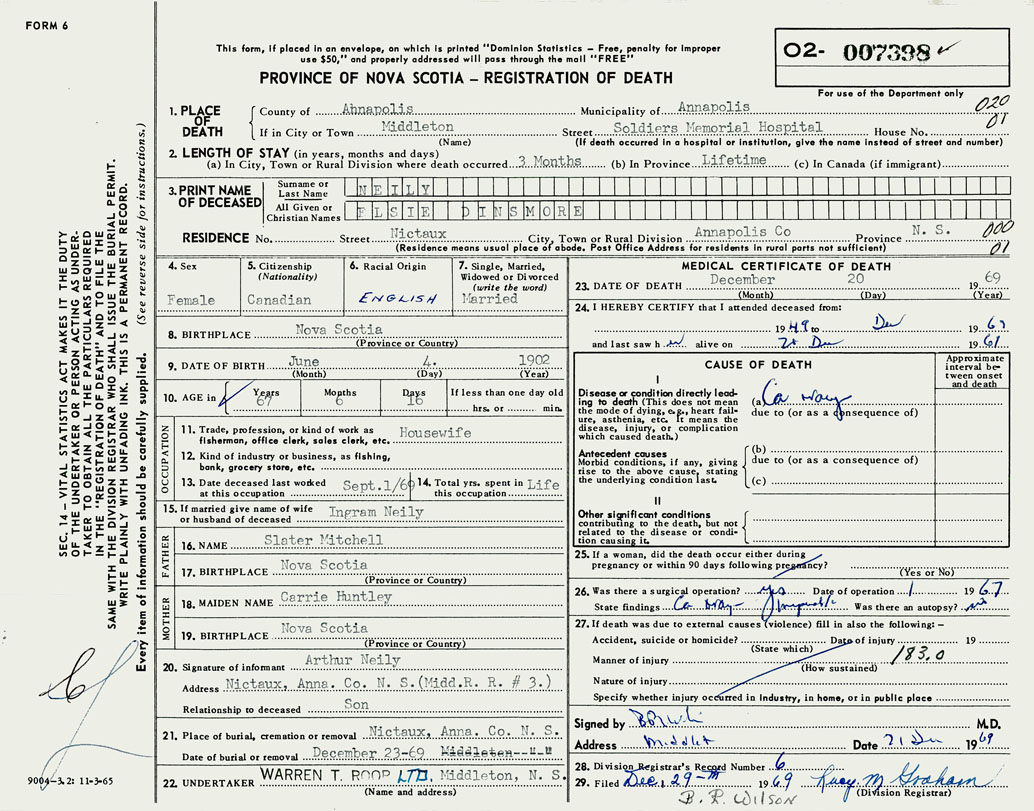 FORM 6
This form, if placed in an envelope, on which is printed "Dominion Statistics – Free, penalty for improper
use $50," and properly addressed will pass through the mail "FREE"
PROVINCE OF NOVA SCOTIA – REGISTRATION OF DEATH
O2- 007398
For use of the Department only
020
01
1. PLACE OF DEATH
County of Annapolis Municipality of Annapolis
If in City or Town Middleton Street Soldiers Memorial Hospital House No.
(Name) (If death occurred in a hospital or institution, give the name instead of street and number)
2. LENGTH OF STAY (in years, months and days)
(a) In City, Town or Rural Division where death occurred 3 Months (b) In Province Lifetime (c) In Canada (if immigrant)
3. PRINT NAME OF DECEASED
Surname or Last Name NEILY
All Given or Christian Names ELSIE DINSMORE
RESIDENCE No. Street Nictaux City, Town or Rural Division Annapolis Co Province N. S.
(Residence means usual place of abode. Post Office Address for residents in rural parts not sufficient)
000
01
4. Sex
Female
5. Citizenship
(Nationality)
Canadian
6. Racial Origin
ENGLISH
7. Single, Married,
Widowed or Divorced
(write the word)
Married
8. BIRTHPLACE Nova Scotia
(Province or Country)
9. DATE OF BIRTH June 4. 1902
(Month) (Day) (Year)
10. AGE in Years Months Days If less than one day old
67 6 16 hrs. or min.
OCCUPATION
11. Trade, profession or kind of work as Housewife
fishermen, office clerk, sales clerk, etc.
12. Kind of industry or business, as fishing,
bank, grocery store, etc.
13. Date deceased last worked
at this occupation Sept.1/69
14. Total yrs. spent in
this occupation Life
15. If married give name of wife
or husband of deceased Ingram Neily
FATHER
16. NAME Slater Mitchell
17. BIRTHPLACE Nova Scotia
(Province or Country)
MOTHER
18. MAIDEN NAME Carrie Huntley
19. BIRTHPLACE Nova Scotia
(Province or Country)
20. Signature of informant Arthur Neily
Address Nictaux, Anna. Co. N. S.(Midd.R. R. # 3.)
Relationship to deceased Son
21. Place of burial, cremation or removal Nictaux, Anna. Co. N. S.
Date of burial or removal December 23-69
22. UNDERTAKER WARREN T. ROOP LTD, Middleton, N. S.
(Name and address)
MEDICAL CERTIFICATE OF DEATH
23. DATE OF DEATH December 20 1969
(Month) (Day) (Year)
24. I HEREBY CERTIFY that I attended deceased from:
1949 to Dec 19
and last saw h alive on Dec 19
CAUSE OF DEATH
Approximate
interval be-
tween onset
and death
I
Disease or condition directly lead-
ing to death (This does not mean
the mode of dying, e.g., heart fail-
ure, asthenia, etc. It means the
disease, injury, or complication
which caused death.)
(a) Ca ovary
due to (or as a consequence of)
Antecedent causes
Morbid conditions, if any, giving
rise to the above cause, stating
the underlying condition last.
(b)
due to (or as a consequence of)
(c)
II
Other significant conditions
contributing to the death, but not
related to the disease or condi-
tion causing it.
25. If a woman, did the death occur either during
pregnancy or within 90 days following pregnancy?
(Yes or No)
26. Was there a surgical operation? yes Date of operation 1967
State findings Ca ovary - Inoperable Was there an autopsy?
27. If death was due to external causes (violence) fill in also the following: –
Accident, suicide or homicide? Date of injury 19
(State which)
Manner of injury 183.0
(How sustained)
Nature of injury
Specify whether injury occurred in Industry, in home, or in public place
Signed by M.D.
Address Date 21 Dec 1969
28. Division Registrar's Record Number 6
29. Filed Dec, 29-th 1969 Lucy M Graham
(Division Registrar)
B. R. WILSON
SEC. 14 – VITAL STATISTICS ACT MAKES IT THE DUTY
OF THE UNDERTAKER OR PERSON ACTING AS UNDER-
TAKER TO OBTAIN ALL THE PARTICULARS REQUIRED
IN THE "REGISTRATION OF DEATH" AND TO FILE THE
SAME WITH THE DIVISION REGISTRAR WHO SHALL ISSUE THE BURIAL PERMIT.
WRITE PLAINLY WITH UNFADING INK. THIS IS A PERMANENT RECORD.
Every item of information should be carefully supplied. (See reverse side for instructions.)
9004-3.2: 11-3-65